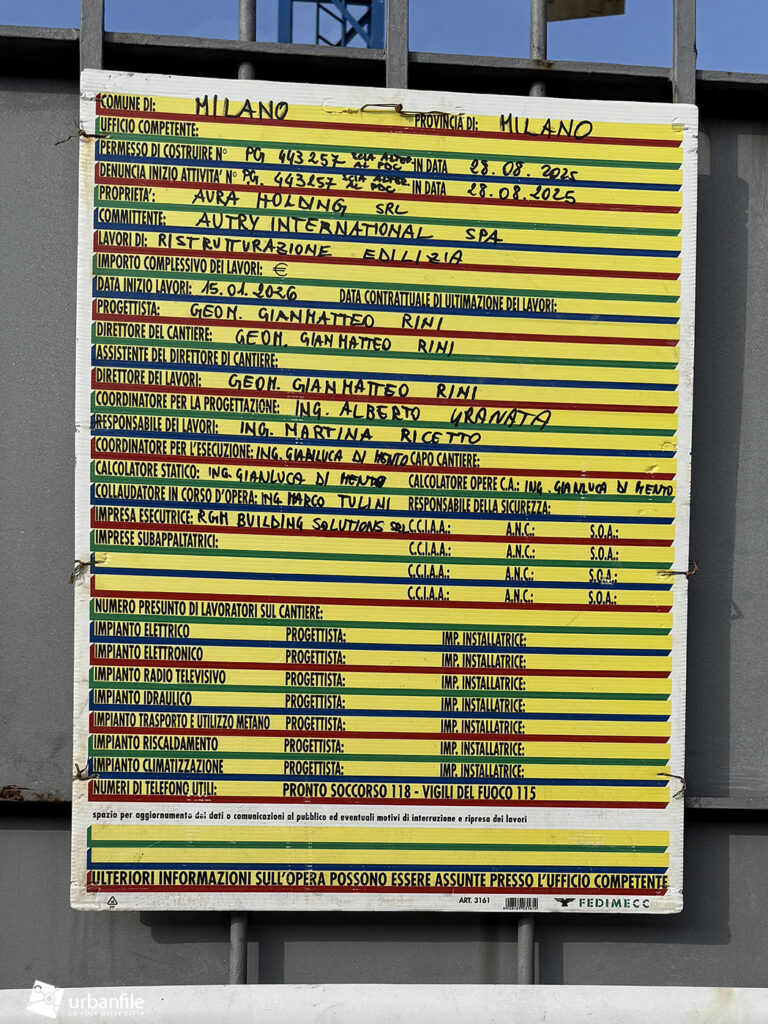 COMUNE DI: MILANO PROVINCIA DI: MILANO
UFFICIO COMPETENTE:
PERMESSO DI COSTRUIRE N° PG 443257 SCIA ALTER. AL PDC IN DATA 28.08.2025
DENUNCIA INIZIO ATTIVITA' N° PG. 443257 SCIA ALTER. AL PDC IN DATA 28.08.2025
PROPRIETA': AURA HOLDING SRL
COMMITTENTE: AUTRY INTERNATIONAL SPA
LAVORI DI: RISTRUTTURAZIONE EDILIZIA
IMPORTO COMPLESSIVO DEI LAVORI: €
DATA INIZIO LAVORI: 15.01.2026 DATA CONTRATTUALE DI ULTIMAZIONE DEI LAVORI:
PROGETTISTA: GEOM. GIANMATTEO RINI
DIRETTORE DEL CANTIERE: GEOM. GIANMATTEO RINI
ASSISTENTE DEL DIRETTORE DI CANTIERE:
DIRETTORE DEI LAVORI: GEOM. GIANMATTEO RINI
COORDINATORE PER LA PROGETTAZIONE: ING. ALBERTO GRANATA
RESPONSABILE DEI LAVORI: ING. MARTINA RICETTO
COORDINATORE PER L'ESECUZIONE: ING. GIANLUCA DI MENTO CAPO CANTIERE:
CALCOLATORE STATICO: ING. GIANLUCA DI MENTO CALCOLATORE OPERE C.A.: ING. GIANLUCA DI MENTO
COLLAUDATORE IN CORSO D'OPERA: ING. MARCO TULINI RESPONSABILE DELLA SICUREZZA:
IMPRESA ESECUTRICE: RGM BUILDING SOLUTIONS SRL C.C.I.A.A.: A.N.C.: S.O.A.:
IMPRESE SUBAPPALTATRICI: C.C.I.A.A.: A.N.C.: S.O.A.:
C.C.I.A.A.: A.N.C.: S.O.A.:
C.C.I.A.A.: A.N.C.: S.O.A.:
NUMERO PRESUNTO DI LAVORATORI SUL CANTIERE:
IMPIANTO ELETTRICO PROGETTISTA: IMP. INSTALLATRICE:
IMPIANTO ELETTRONICO PROGETTISTA: IMP. INSTALLATRICE:
IMPIANTO RADIO TELEVISIVO PROGETTISTA: IMP. INSTALLATRICE:
IMPIANTO IDRAULICO PROGETTISTA: IMP. INSTALLATRICE:
IMPIANTO TRASPORTO E UTILIZZO METANO PROGETTISTA: IMP. INSTALLATRICE:
IMPIANTO RISCALDAMENTO PROGETTISTA: IMP. INSTALLATRICE:
IMPIANTO CLIMATIZZAZIONE PROGETTISTA: IMP. INSTALLATRICE:
NUMERI DI TELEFONO UTILI: PRONTO SOCCORSO 118 - VIGILI DEL FUOCO 115
spazio per aggiornamento dei dati o comunicazioni al pubblico ed eventuali motivi di interruzione e ripresa dei lavori
ULTERIORI INFORMAZIONI SULL'OPERA POSSONO ESSERE ASSUNTE PRESSO L'UFFICIO COMPETENTE
ART. 3161 FEDIMECC
urbanfile
LA VOCE DELLE CITTÀ